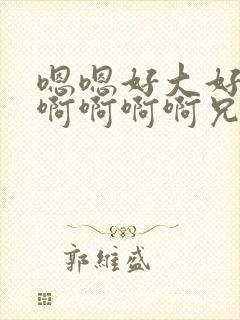 嗯嗯好大好
啊啊啊啊兄
郭維盛